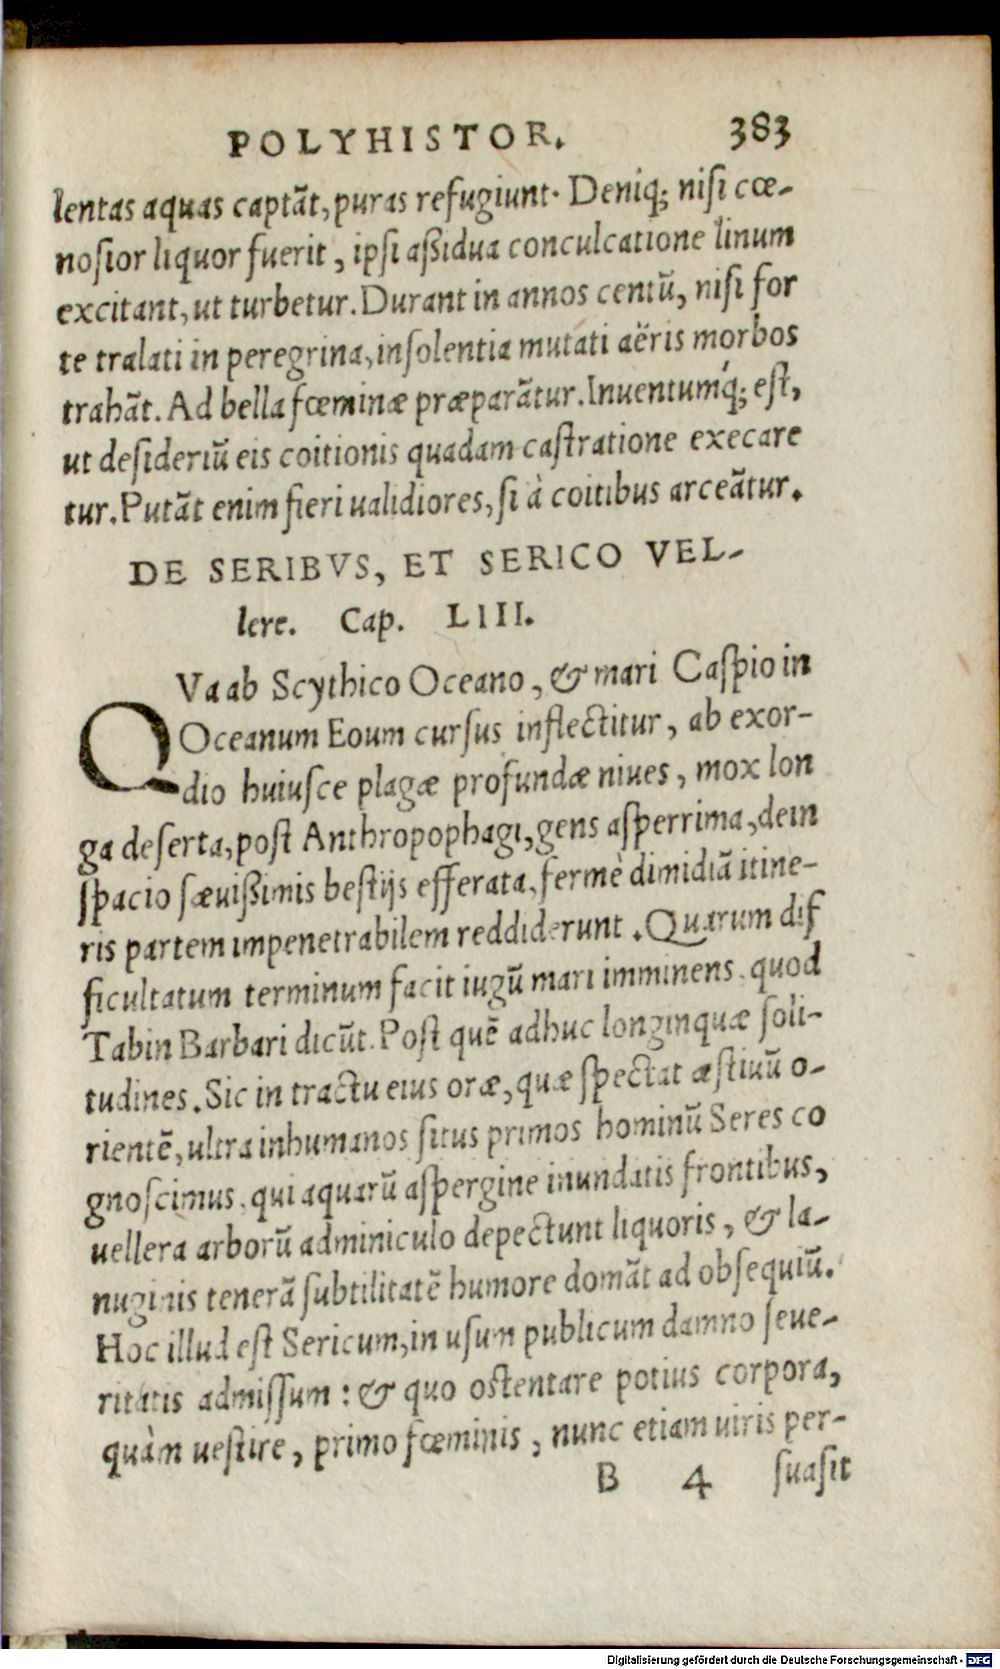 POLYHISTOR. 383
lentas aquas captãt, puras refugiunt. Deniq; nisi cœ-
nosior liquor fuerit, ipsi aßidua conculcatione linum
excitant, ut turbetur. Durant in annos centũ, nisi for
te tralati in peregrina, insolentia mutati aëris morbos
trahãt. Ad bella fœminæ præparãtur. Inuentumq́; est,
ut desideriũ eis coitionis quadam castratione execare
tur. Putãt enim fieri ualidiores, si à coitibus arceãtur.
DE SERIBVS, ET SERICO VEL-
lere. Cap. LIII.
QVa ab Scythico Oceano, & mari Caspio in
Oceanum Eoum cursus inflectitur, ab exor-
dio huiusce plagæ profundæ niues, mox lon
ga deserta, post Anthropophagi, gens asperrima, dein
spacio sæuißimis bestijs efferata, fermè dimidiã itine-
ris partem impenetrabilem reddiderunt. Quarum dif
ficultatum terminum facit iugũ mari imminens, quod
Tabin Barbari dicũt. Post quẽ adhuc longinquæ soli-
tudines. Sic in tractu eius oræ, quæ spectat æstiuũ o-
rientẽ, ultra inhumanos situs primos hominũ Seres co
gnoscimus, qui aquarũ aspergine inundatis frontibus,
uellera arborũ adminiculo depectunt liquoris, & la-
nuginis tenerã subtilitatẽ humore domãt ad obsequiũ.
Hoc illud est Sericum, in usum publicum damno seue-
ritatis admissum: & quo ostentare potius corpora,
quàm uestire, primo fœminis, nunc etiam uiris per-
B 4 suasit
Digitalisierung gefördert durch die Deutsche Forschungsgemeinschaft - DFG